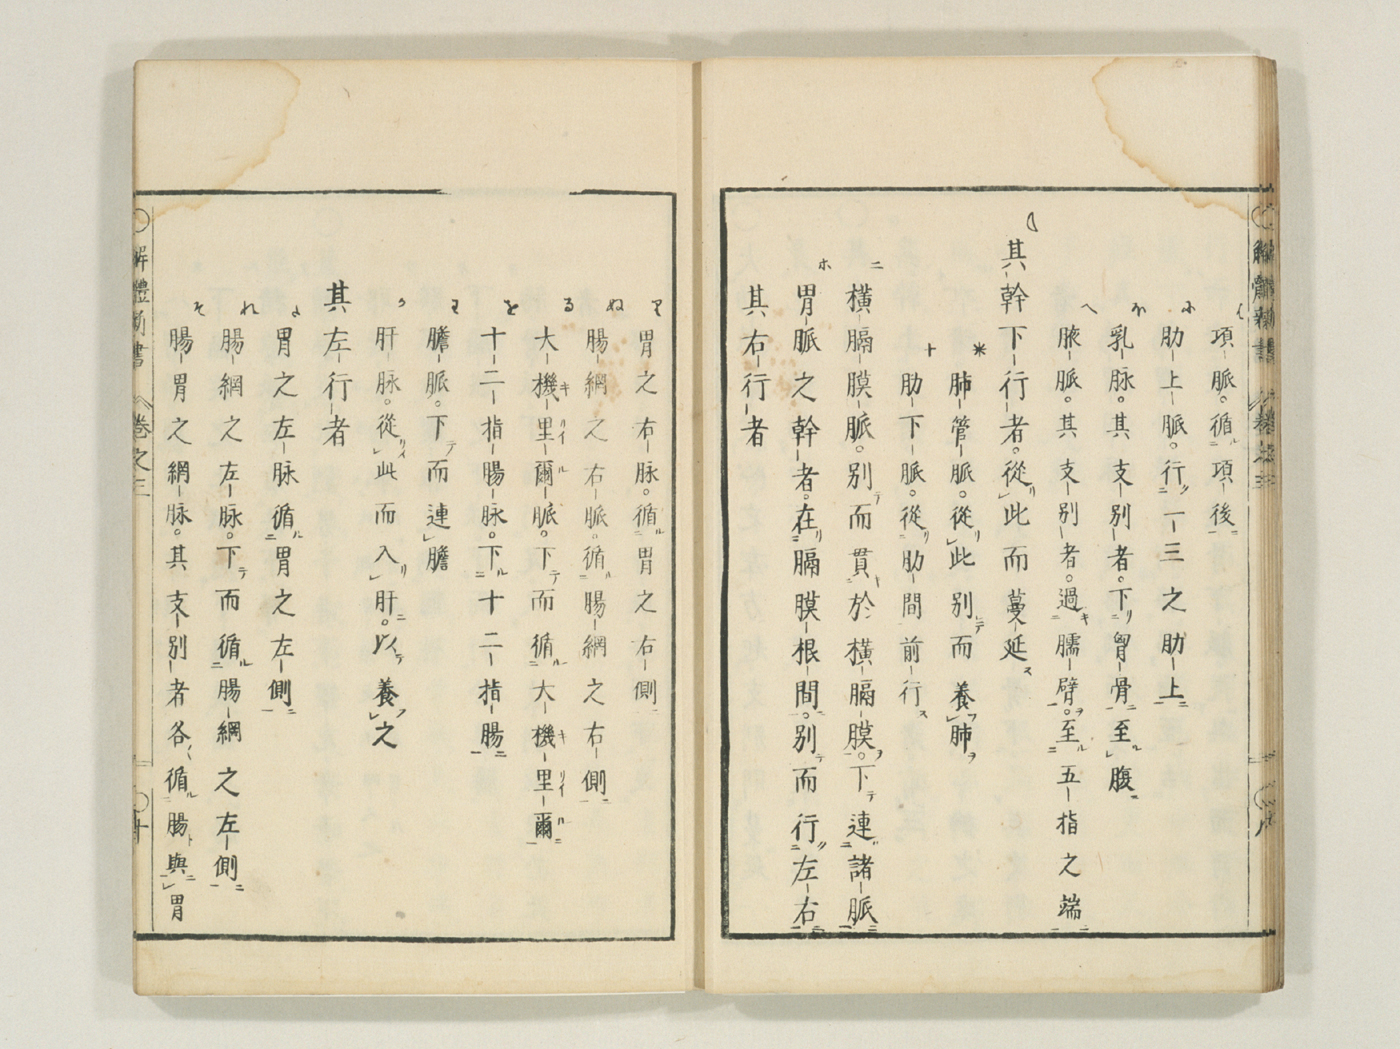 項脈。循項後
肋上脈。行一三之肋上
乳脉。其支別者。下胷骨至腹
腋脈。其支別者。過臑臂。至五指之端
其幹下行者。從此而蔓延
肺管脈。從此別而養肺
肋下脈。從肋間前行
二 横膈膜脈。別而貫於横膈膜。下連諸脈
ホ 胃脈之幹者。在膈膜根間。別而行左右
其右行者
胃之右脉。循胃之右側
ぬ 腸網之右脈。循腸網之右側
る 大機里爾脈。下而循大機里爾
を 十二指腸脉。下十二指腸
わ 膽脈。下而連膽
か 肝脉。從此而入肝。以養之
其左行者
よ 胃之左脉循胃之左側
れ 腸網之左脉。下而循腸網之左側
そ 腸胃之網脉。其支別者各循腸與胃
解體新書 卷之三
十